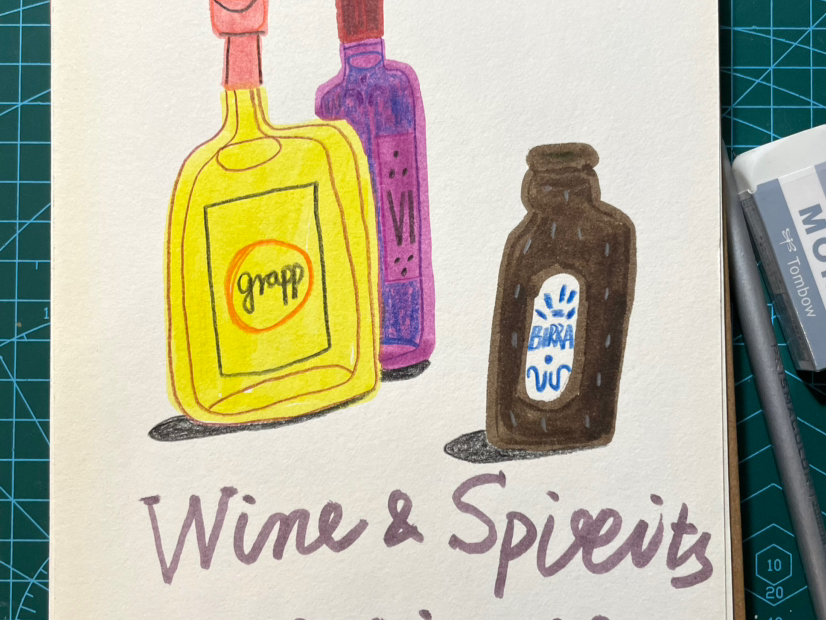 grapp
VI
BIRRA
Wine & Spireits
Tombow
10
20